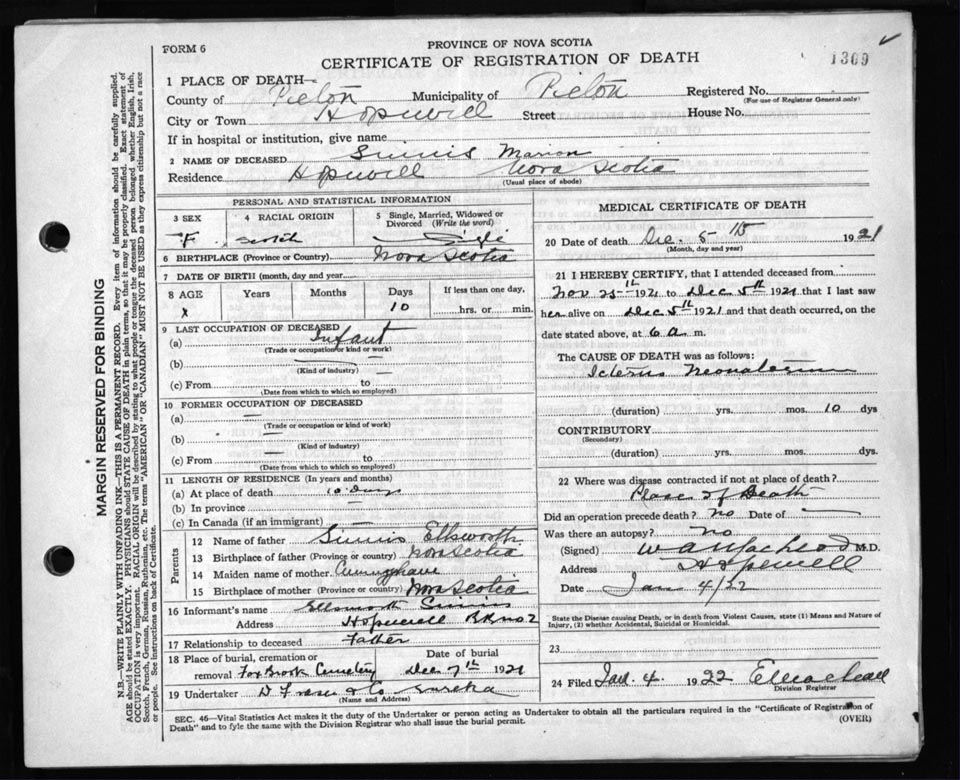 FORM 6
PROVINCE OF NOVA SCOTIA
CERTIFICATE OF REGISTRATION OF DEATH
1309
1 PLACE OF DEATH—
County of Pictou Municipality of Pictou Registered No.
(For use of Registrar General only)
City or Town Hopewell Street House No.
If in hospital or institution, give name
2 NAME OF DECEASED Simms Marion
Residence Hopewell Nova Scotia
(Usual place of abode)
MARGIN RESERVED FOR BINDING
N.B.—WRITE PLAINLY WITH UNFADING INK—THIS IS A PERMANENT RECORD. Every item of information should be carefully supplied.
AGE should be stated EXACTLY. PHYSICIANS should STATE CAUSE OF DEATH in plain terms, so that it may be properly classified. Exact statement of
OCCUPATION is very important. RACIAL ORIGIN will be described by stating to what people or tongue the deceased person belonged, whether English, Irish,
Scotch, French, German, Russian, Ruthenian, etc. The terms "AMERICAN" OR "CANADIAN" MUST NOT BE USED as they express citizenship but not a race
or people. See instructions on back of Certificate.
PERSONAL AND STATISTICAL INFORMATION
3 SEX
F
4 RACIAL ORIGIN
Scotch
5 Single, Married, Widowed or
Divorced (Write the word)
6 BIRTHPLACE (Province or Country) Nova Scotia
7 DATE OF BIRTH (month, day and year
8 AGE Years Months Days If less than one day,
x 10 hrs. or min.
9 LAST OCCUPATION OF DECEASED
(a) Infant
(Trade or occupation or kind or work)
(b)
(Kind of industry)
(c) From to
(Date from which to which so employed)
10 FORMER OCCUPATION OF DECEASED
(a) —
(Trade or occupation or kind of work)
(b) —
(Kind of industry)
(c) From — to
(Date from which to which so employed)
11 LENGTH OF RESIDENCE (In years and months)
(a) At place of death 10 days
(b) In province —
(c) In Canada (if an immigrant) —
Parents
12 Name of father Simms Ellsworth
13 Birthplace of father (Province or country) Nova Scotia
14 Maiden name of mother Cunninghame
15 Birthplace of mother (Province or country) Nova Scotia
16 Informant's name Ellsworth Simms
Address Hopewell RR no 2
17 Relationship to deceased Father
18 Place of burial, cremation or Date of burial
removal Fox Brook Cemetery Dec 7th 1921
19 Undertaker D Fraser & Co Eureka
(Name and Address)
MEDICAL CERTIFICATE OF DEATH
20 Date of death Dec. 5th 1921
(Month, day and year)
21 I HEREBY CERTIFY, that I attended deceased from
Nov 25th 1921 to Dec 5th 1921 that I last saw
her alive on Dec 5th 1921 and that death occurred, on the
date stated above, at 6 a m.
The CAUSE OF DEATH was as follows:
Icterus Neonatorum
(duration) yrs. mos. 10 dys
CONTRIBUTORY
(Secondary)
(duration) yrs. mos. dys.
22 Where was disease contracted if not at place of death?
Place of Death
Did an operation precede death? no Date of —
Was there an autopsy? no
(Signed) M.D.
Address Hopewell
Date Jan 4/22
State the Disease causing Death, or in death from Violent Causes, state (1) Means and Nature of
Injury, (2) whether Accidental, Suicidal or Homicidal.
23
24 Filed Jan. 4. 1922
Division Registrar
SEC. 46—Vital Statistics Act makes it the duty of the Undertaker or person acting as Undertaker to obtain all the particulars required in the "Certificate of Registration of
Death" and to fyle the same with the Division Registrar who shall issue the burial permit.
(OVER)